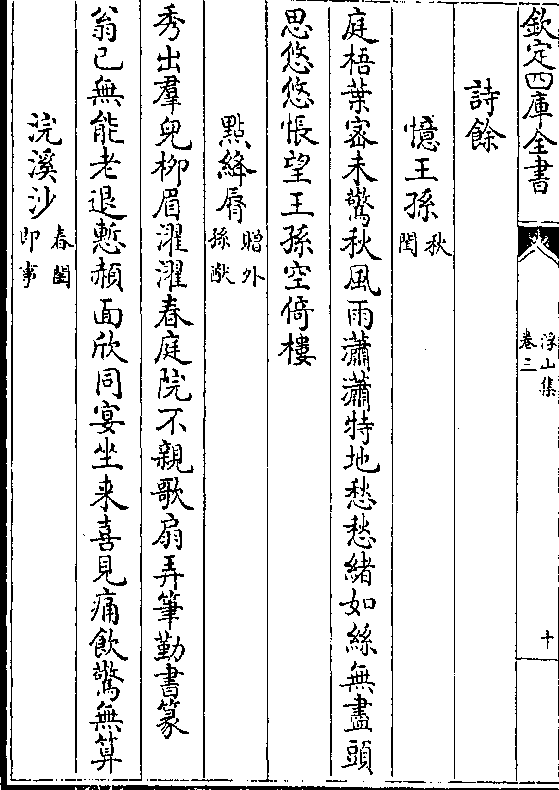 欽定四庫全書
浮山集
卷三
十
詩餘
憶王孫
秋
閨
庭梧葉密未驚秋風雨瀟瀟特地愁愁緒如絲無盡頭
思悠悠悵望王孫空倚樓
點絳脣
贈外
孫
秀出羣兒柳眉濯濯春庭院不親歌扇弄筆勤書篆
翁已無能老退慙赬面欣同宴坐来喜見痛飲驚無算
浣溪沙
春閨
即事